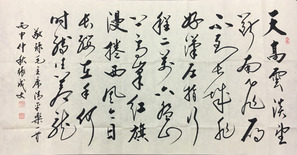 天高雲淡
望斷南飛雁
不到長城非
好漢屈指行
程二萬六盤
山上高峰紅旗
漫捲西風今日
長纓在手何
時縛住蒼龍
敬録毛主席清平樂一首
丙申仲秋張成